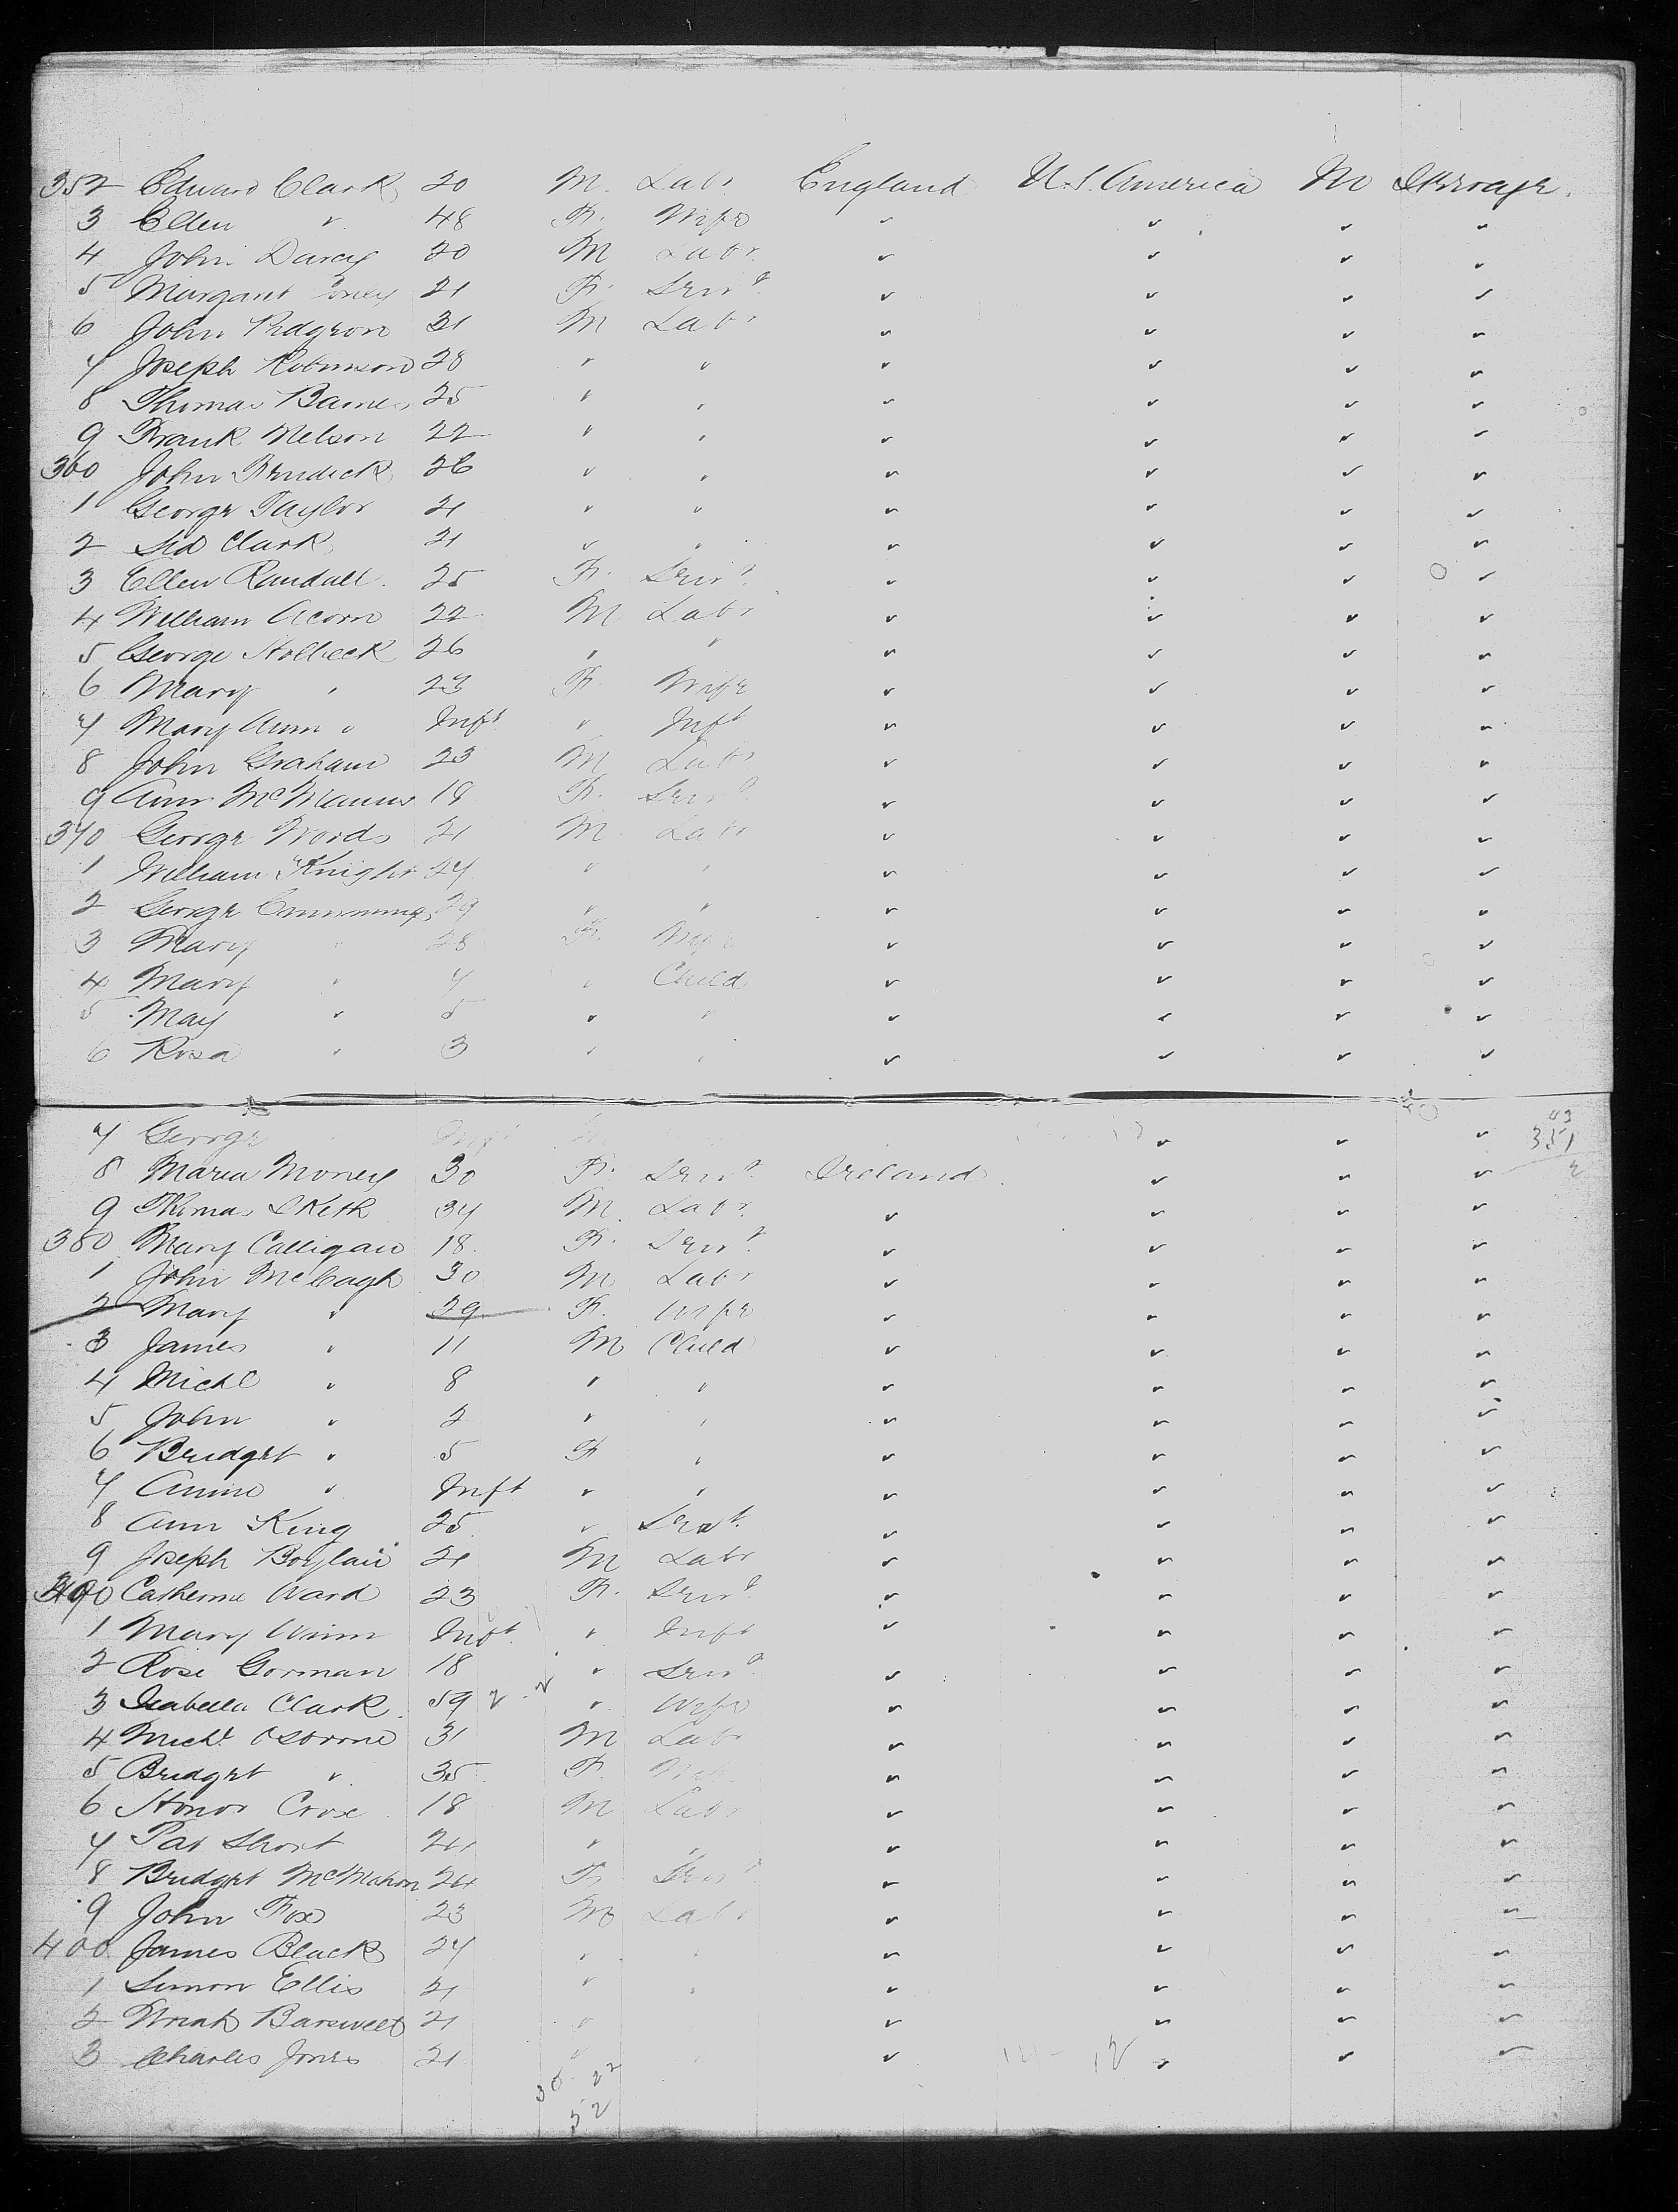 352 Edward Clark 20 M. Labr. England U.S. America No Steerage.
3 Ellen " 48 F. Wife " " " "
4 John Darcy 20 M Labr. " " " "
5 Margaret 21 F. Servt. " " " "
6 John 31 M Labr " " " "
7 Joseph Robinson 28 " " " " " "
8 Thomas Barnes 25 " " " " " "
9 Frank Nelson 22 " " " " " "
360 John 26 " " " " " "
1 George Taylor 21 " " " " " "
2 Sid Clark 21 " " " " " "
3 Ellen Randall. 25 F. Servt. " " " "
4 William Acorn 22 M Labr " " " "
5 George Holbeck 26 " " " " " "
6 Mary " 23 F. Wife " " " "
7 Mary Ann " Inft " Inft " " " "
8 John Graham 23 M Labr " " " "
9 Ann McManus 18 F. Servt " " " "
370 George Woods 21 M Labr " " " "
1 William Knight 24 " " " " " "
2 George Cummings 29 " " " " " "
3 Mary " 28 F. Wife " " " "
4 Mary " 7 " Child " " " "
5 May " 5 " " " " " "
6 Rosa " 3 " " " " " "
7 George " Inft " " "
8 Maria Money 30 F. Servt. Ireland " " "
9 Thomas 34 M. Labr. " " " "
380 Mary Calligan 18. F. Servt. " " " "
1 John McCagh 30 M Labr " " " "
2 Mary " 29 F. Wife " " " "
3 James " 11 M Child " " " "
4 Michl " 8 " " " " " "
5 John " 2 " " " " " "
6 Bridget " 5 F " " " " "
7 Annie " Inft " " " " " "
8 Ann King 25 " Servt. " " " "
9 Joseph Boylan 21 M Labr " " " "
390 Catherine Ward 23 F. Servt " " " "
1 Mary Winn Inft. " Inft " " " "
2 Rose Gorman 18 " Servt " " " "
3 Isabella Clark. 59 " Wife " " " "
4 Michl Osborne 31 M Labr " " " "
5 Bridget " 35 F Wife " " " "
6 Honor 18 M Labr " " " "
7 Pat Short 24 " " " " " "
8 Bridget McMahon 24 F Servt " " " "
9 John Fox 23 M Labr " " " "
400 James Black 24 " " " " " "
1 Simon Ellis 21 " " " " " "
2 21 " " " " "
3 Charles Jones 21 " " " " "
30 22
52